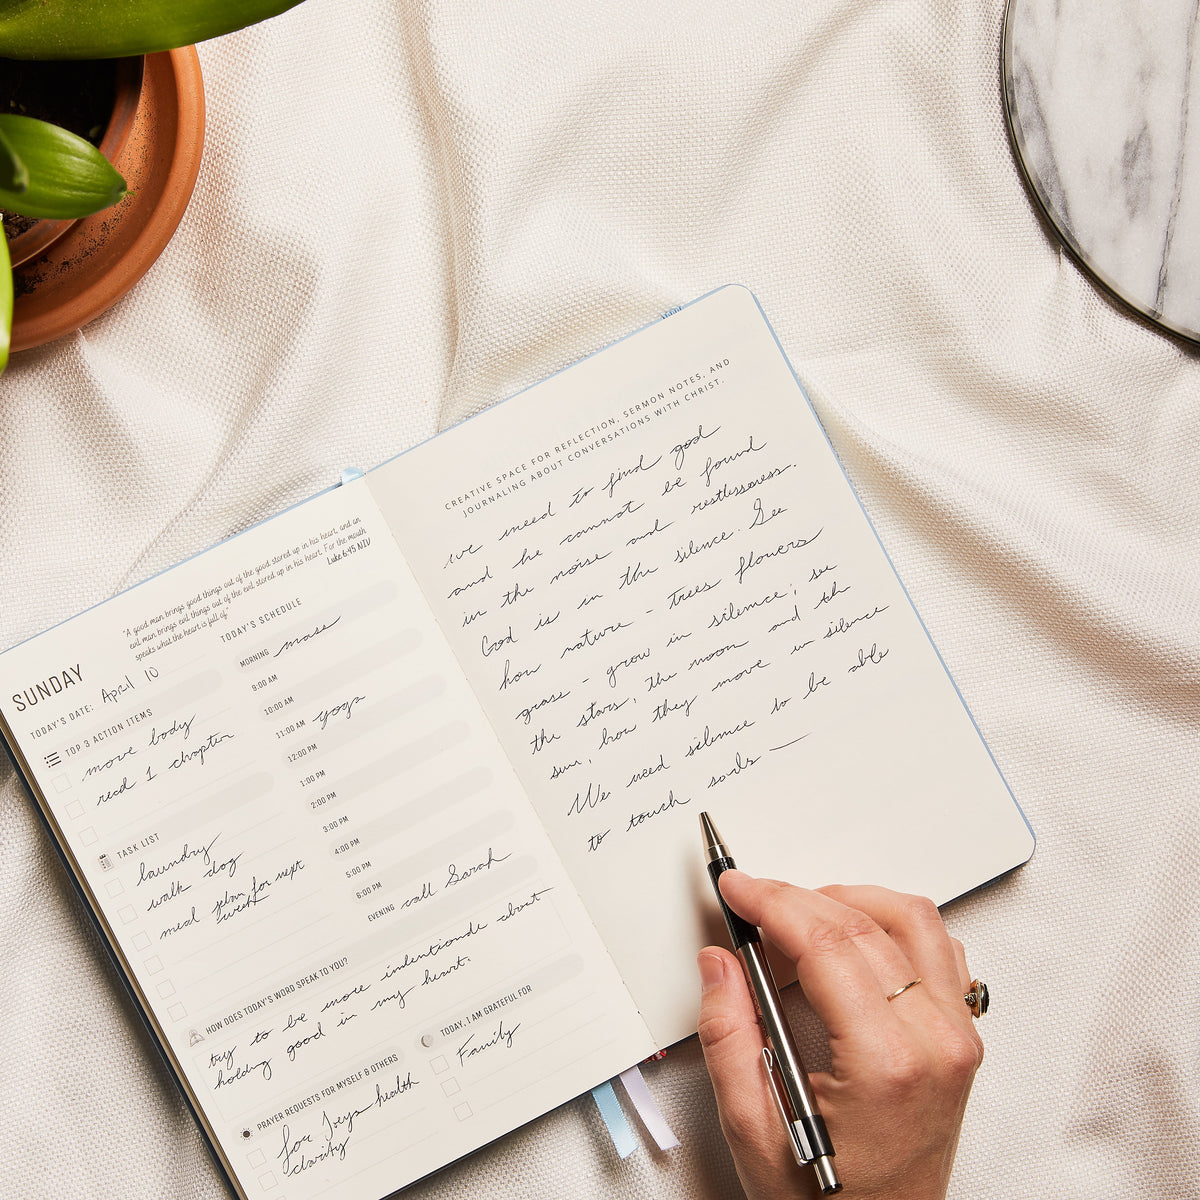 "A good man brings good things out of the good stored up in his heart, and an
evil man brings evil things out of the evil stored up in his heart. For the mouth
speaks what the heart is full of."
Luke 6:45 NIV
SUNDAY
TODAY'S DATE: April 10
TOP 3 ACTION ITEMS
move body
read 1 chapter
TASK LIST
laundry
walk dog
meal plan for next
week
TODAY'S SCHEDULE
MORNING mass
9:00 AM
10:00 AM
11:00 AM yoga
12:00 PM
1:00 PM
2:00 PM
3:00 PM
4:00 PM
5:00 PM
6:00 PM
EVENING call Sarah
HOW DOES TODAY'S WORD SPEAK TO YOU?
try to be more intentionale about
holding good in my heart.
PRAYER REQUESTS FOR MYSELF & OTHERS
for Joeys health
clarity
TODAY, I AM GRATEFUL FOR
Family
CREATIVE SPACE FOR REFLECTION, SERMON NOTES, AND
JOURNALING ABOUT CONVERSATIONS WITH CHRIST.
we need to find god
and he cannot be found
in the noise and restlessness.
God is in the silence. See
how nature - trees flowers
grass - grow in silence; se
the stars, the moon and the
sun, how they move in silence
We need silence to be able
to touch souls —